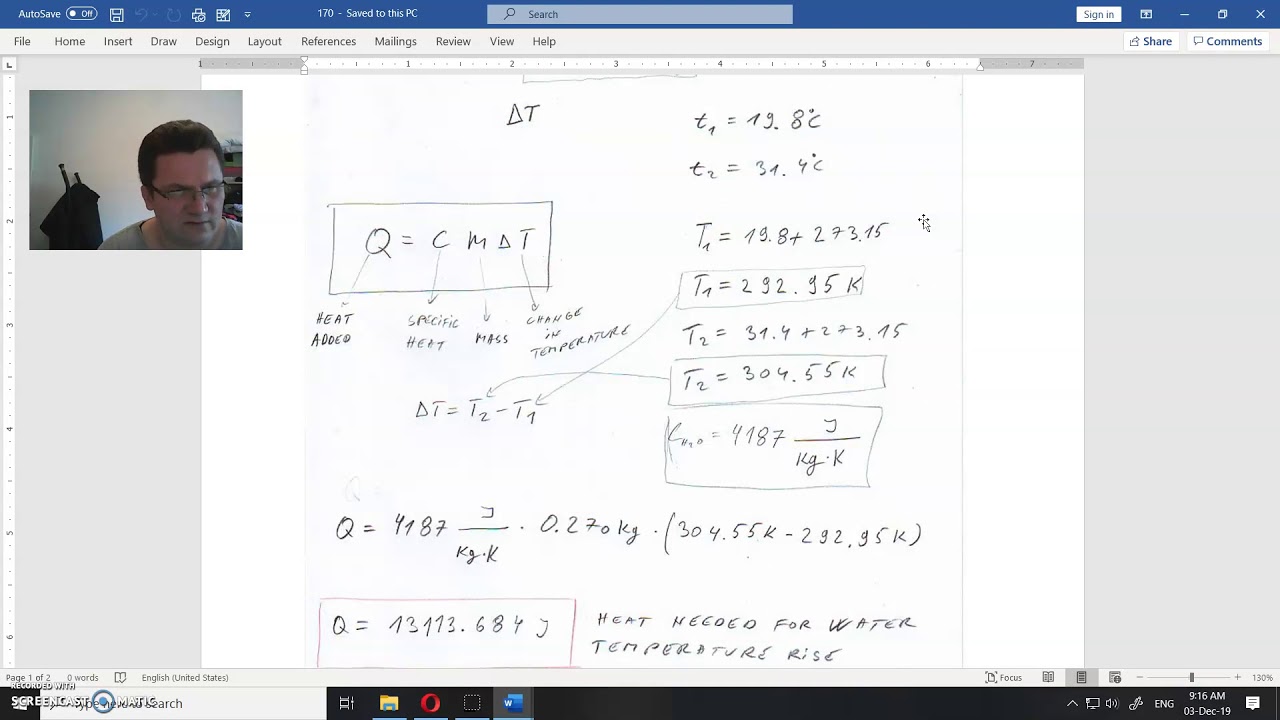 AutoSave Off 170 - Saved to this PC Search Sign in
File Home Insert Draw Design Layout References Mailings Review View Help Share Comments
1 1 2 3 4 5 6 7
ΔT
t₁ = 19.8°C
t₂ = 31.4°C
Q = C m Δ T
HEAT ADDED
SPECIFIC HEAT
MASS
CHANGE IN TEMPERATURE
T₁ = 19.8 + 273.15
T₁ = 292.95 K
T₂ = 31.4 + 273.15
T₂ = 304.55 K
ΔT = T₂ - T₁
C H₂O = 4187 J / kg·K
Q = 4187 J / kg·K · 0.270 kg · (304.55 K - 292.95 K)
Q = 13113.684 J
HEAT NEEDED FOR WATER
TEMPERATURE RISE
Page 1 of 2 0 words English (United States) Focus 130%
RECORDED WITH
SCREENCAST MATIC
Type here to search
ENG 9:16 AM
03-Dec-19